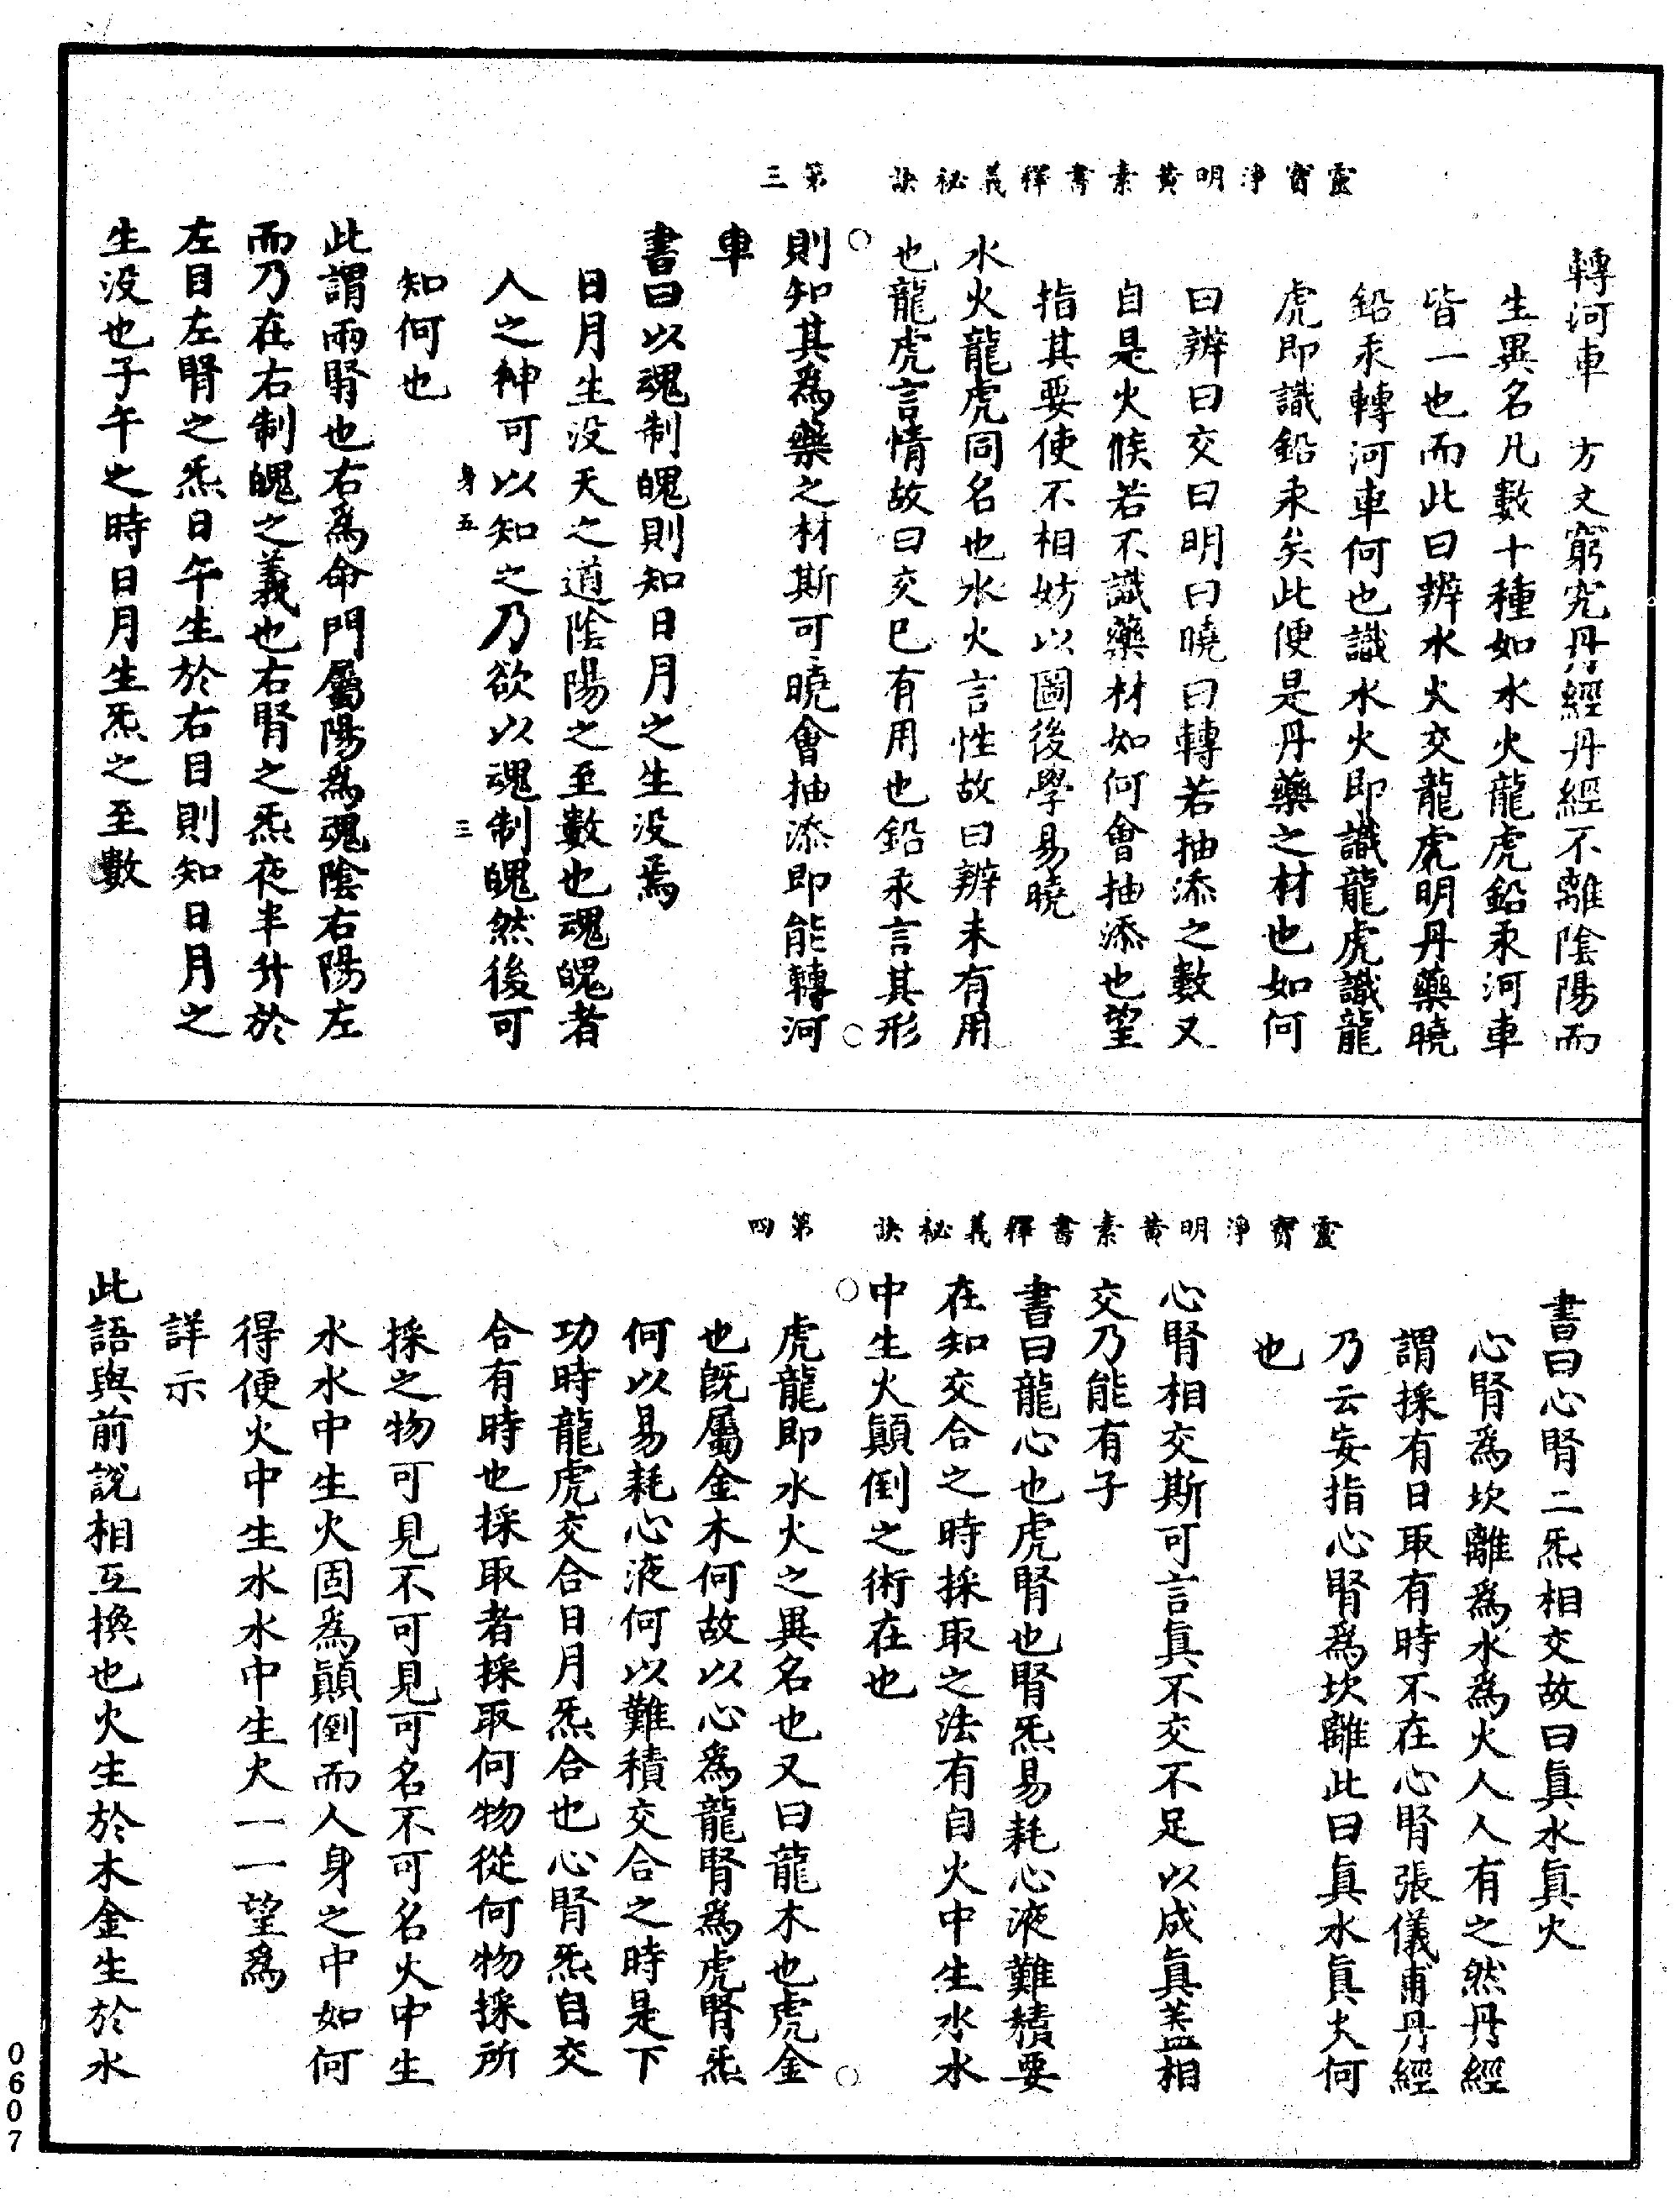 靈寶淨明黃素書釋義祕訣　第三
轉河車　方文窮究丹經丹經不離陰陽而
生異名凡數十種如水火龍虎鉛汞河車
皆一也而此曰辨水火交龍虎明丹藥曉
鉛汞轉河車何也識水火即識龍虎識龍
虎即識鉛汞矣此便是丹藥之材也如何
曰辨曰交曰明曰曉曰轉若抽添之數又
自是火候若不識藥材如何會抽添也望
指其要使不相妨以圖後學易曉
水火龍虎同名也水火言性故曰辨未有用
也龍虎言情故曰交巳有用也鉛汞言其形
則知其為藥之材斯可曉會抽添即能轉河
車
書曰以魂制魄則知日月之生没焉
日月生没天之道陰陽之至數也魂魄者
人之神可以知之乃欲以魂制魄然後可
身五　三
知何也
此謂兩腎也右為命門屬陽為魂陰右陽左
而乃在右制魄之義也右腎之炁夜半升於
左目左腎之炁日午生於右目則知日月之
生没也子午之時日月生炁之至數
靈寶淨明黃素書釋義祕訣　第四
書曰心腎二炁相交故曰真水真火
心腎為坎離為水為火人人有之然丹經
謂採有日取有時不在心腎張儀甫丹經
乃云妄指心腎為坎離此曰真水真火何
也
心腎相交斯可言真不交不足以成真蓋相
交乃能有子
書曰龍心也虎腎也腎炁易耗心液難積要
在知交合之時採取之法有自火中生水水
中生火顛倒之術在也
虎龍即水火之異名也又曰龍木也虎金
也既屬金木何故以心為龍腎為虎腎炁
何以易耗心液何以難積交合之時是下
功時龍虎交合日月炁合也心腎炁自交
合有時也採取者採取何物從何物採所
採之物可見不可見可名不可名火中生
水水中生火固為顛倒而人身之中如何
得便火中生水水中生火一一望為
詳示
此語與前說相互換也火生於木金生於水
0607